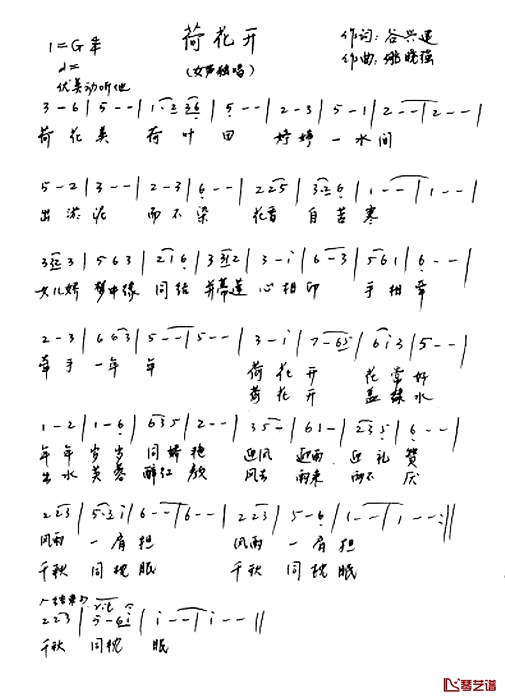 荷花开
(女声独唱)
1=G 3/4
优美动听地
作词:谷兴建
作曲:姚晓强
3 - 6 | 5 - - | 1· 2 3 6 | 5 - - | 2 - 3 | 5 - 1 | 2 - - | 2 - - |
荷花美 荷叶田 婷婷一水间
5 - 2 | 3 - - | 2 - 3 | 6 - - | 2 2 5 | 3 2 6 | 1 - - | 1 - - |
出淤泥 而不染 花香自苦寒
3 2 3 | 5 6 3 | 2 1 6 | 3 2 | 3 - i | 6 - 3 | 5 6 1 | 6 - - |
女儿娇 梦中缘 同结并蒂莲 心相印 手相牵
2 - 3 | 6 6 3 | 5 - - | 5 - - | 3 - i | 7 - 6 5 | 6 i 3 | 5 - - |
牵手一年年 荷花开 花常好
荷花开 盖绿水
1 - 2 | 1 - 6 | 6 3 5 | 2 - - | 3 5 - | 6 1 - | 2 3 5 | 6 - - |
年年岁岁同娇艳 迎风 迎雨 迎礼赞
出水芙蓉醉红颜 风去 雨来 而不厌
2 2 3 | 5· 3 i | 6 - - | 6 - - | 2 2 3 | 5 - 6 | 1 - - | 1 - - :||
风雨一肩担 风雨一肩担
千秋同枕眠 千秋同枕眠
结束句 rit
2 2 3 | 5 - 6 i | i - - | i - - ||
千秋同枕眠
琴艺谱